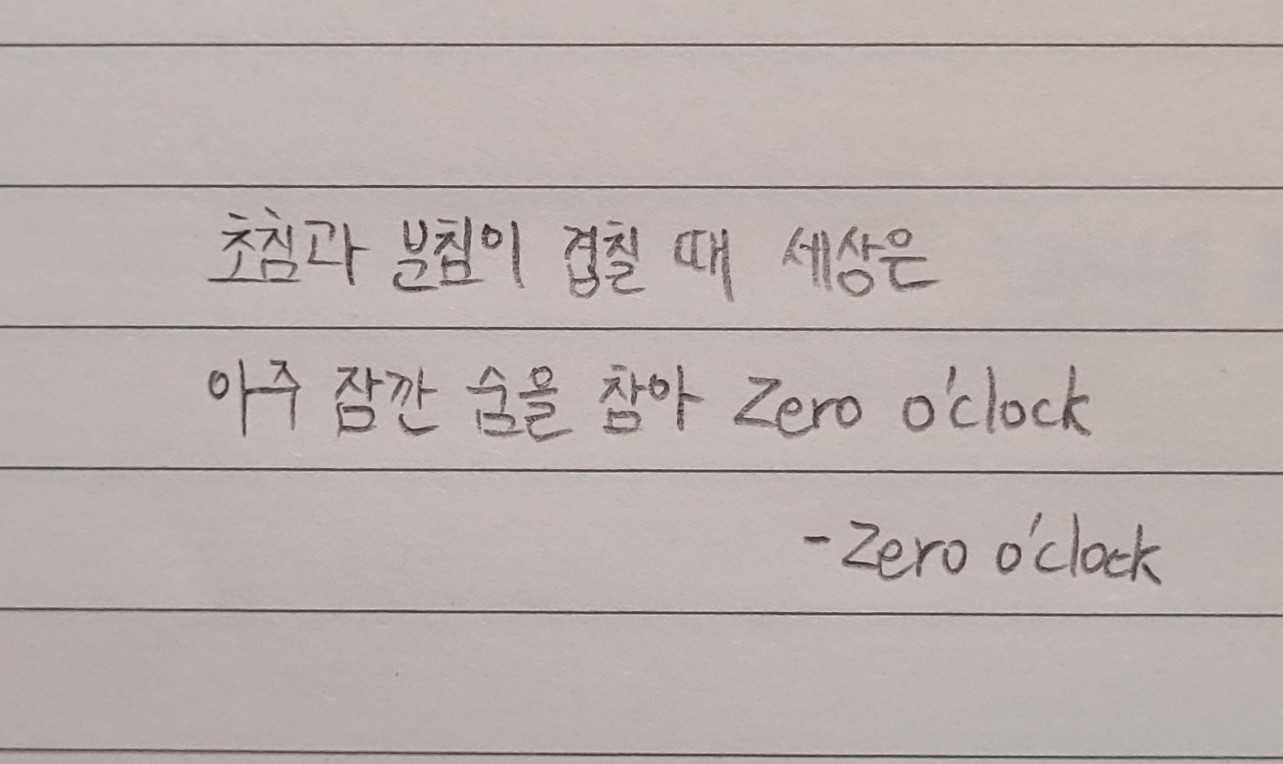 초침과 분침이 겹칠 때 세상은
아주 잠깐 숨을 참아 Zero o'clock
- Zero o'clock